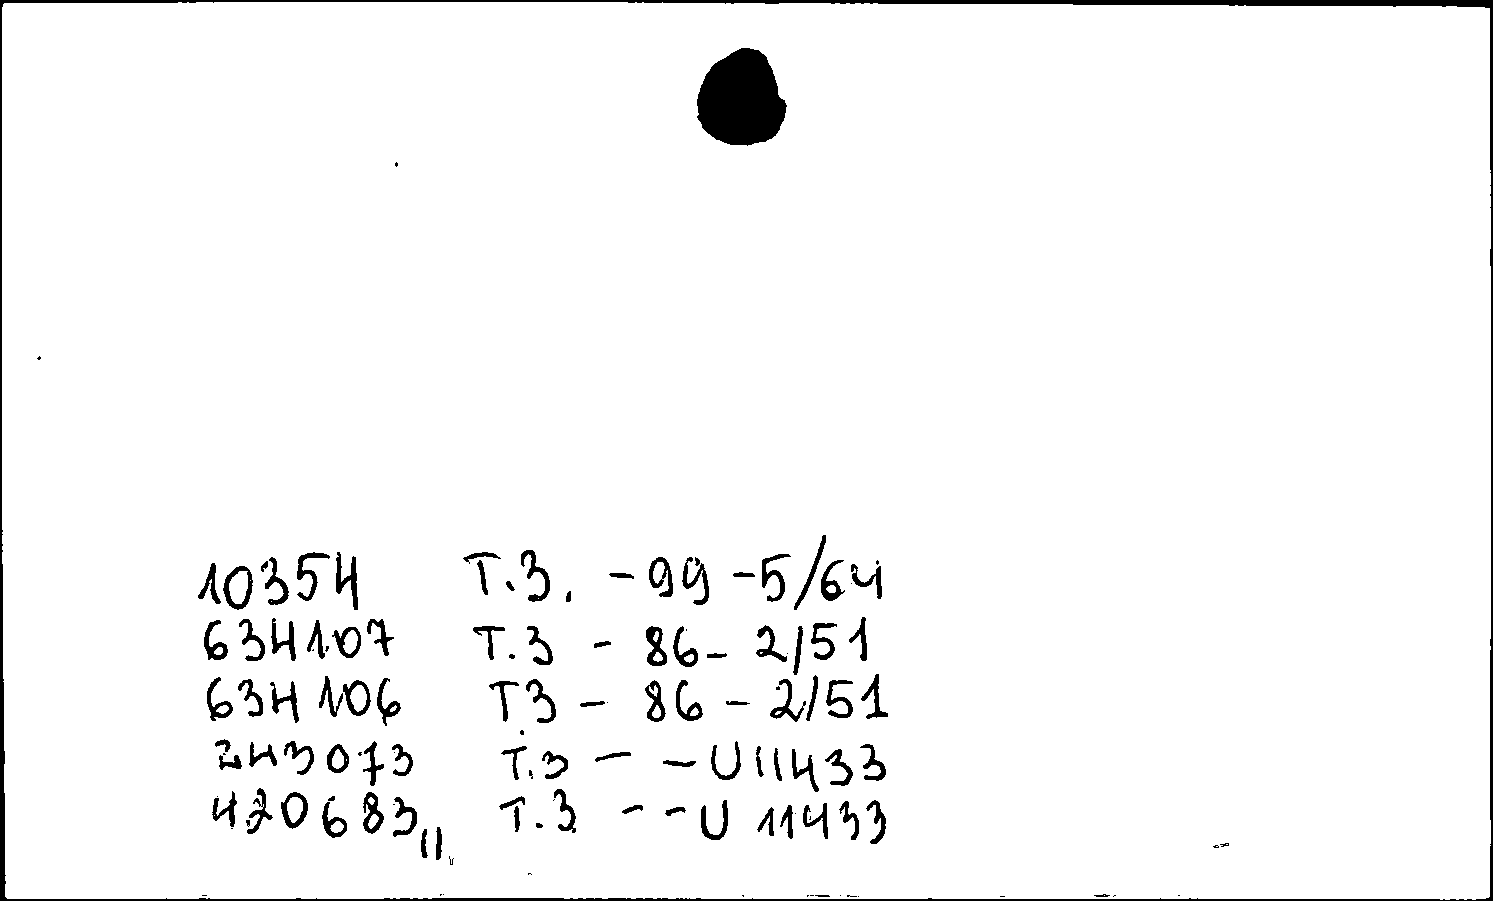 10354 Т.3. - 99 - 5/64
634107 Т.3 - 86 - 2/51
634106 Т3 - 86 - 2/51
243073 Т.3 - - U 11433
420683 Т.3 - - U 11433